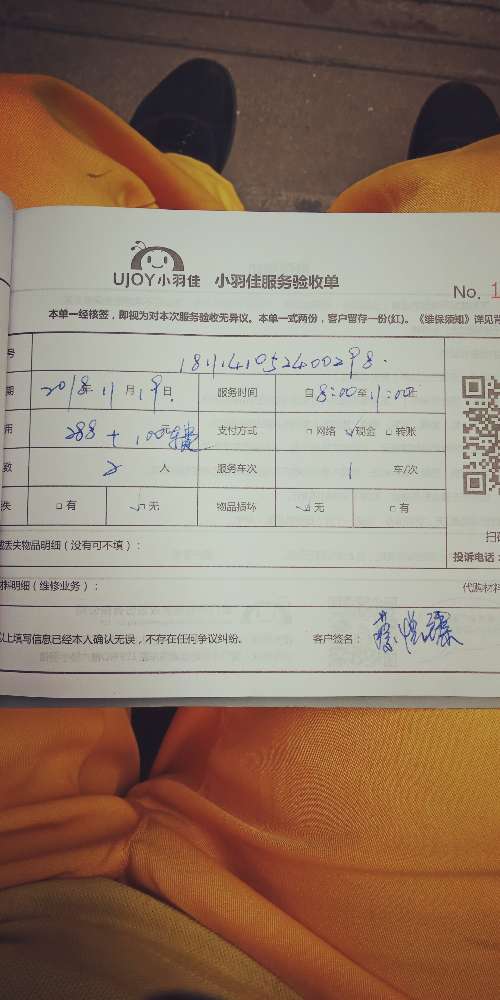 UJOY小羽佳 小羽佳服务验收单
No. 1
本单一经核签，即视为对本次服务验收无异议。本单一式两份，客户留存一份(红)。《维保须知》详见背
号 1811141052400298
期 2018年 11月 19日 服务时间 自8:00至11:00止
用 288 + 100 元 支付方式 □网络 √现金 □转账
数 2 人 服务车次 1 车/次
失 □有 √无 物品损坏 √无 □有
扫码
丢失物品明细（没有可不填）： 投诉电话：
材料明细（维修业务）： 代购材料
以上填写信息已经本人确认无误，不存在任何争议纠纷。 客户签名：